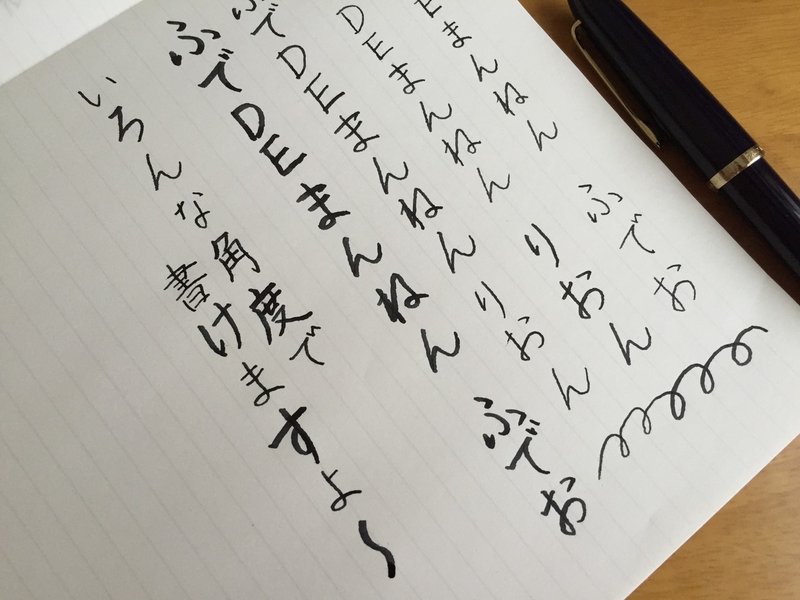 Eまんねん ふでお
DEまんねん りおん
ふでDEまんねん りおん
ふでDEまんねん ふでお
いろんな角度で
書けますよ〜